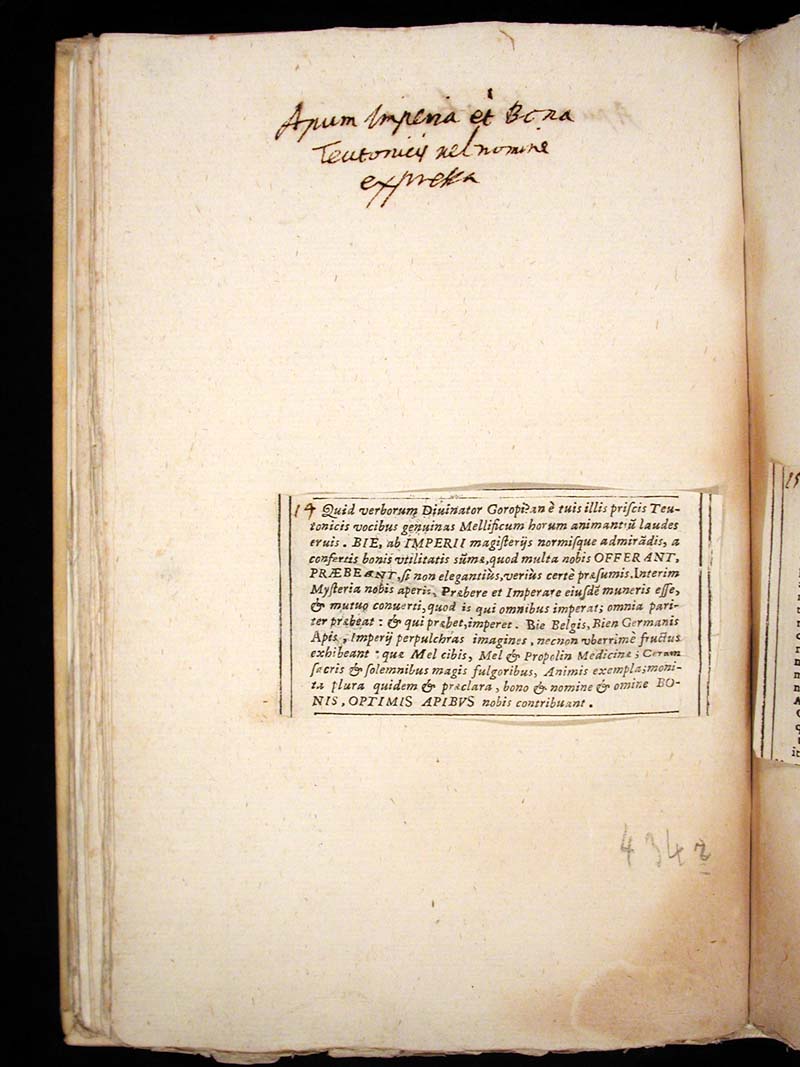 Apum Imperia et Bona
Teutonicis vel nomine
expressa
14 Quid verborum Diuinator Goropi? an è tuis illis priscis Teu-
tonicis vocibus genuinas Mellificum horum animantiũ laudes
eruis. BIE, ab IMPERII magisterijs normisque admirādis, a
confertis bonis vtilitatis sūmæ, quod multa nobis OFFERANT,
PRÆBEANT, si non elegantiùs, verius certè præsumis. Interim
Mysteria nobis aperis, Præbere et Imperare eiusdē muneris esse,
& mutuo conuerti, quod is qui omnibus imperat; omnia pari-
ter præbeat: & qui præbet, imperet. Bie Belgis, Bien Germanis
Apis, Imperij perpulchras imagines, necnon vberrimè fructus
exhibeant: quæ Mel cibis, Mel & Propolin Medicinæ; Ceram
sacris & solemnibus magis fulgoribus, Animis exempla; moni-
ta plura quidem & præclara, bono & nomine & omine BO-
NIS, OPTIMIS APIBVS nobis contribuant.
434
15